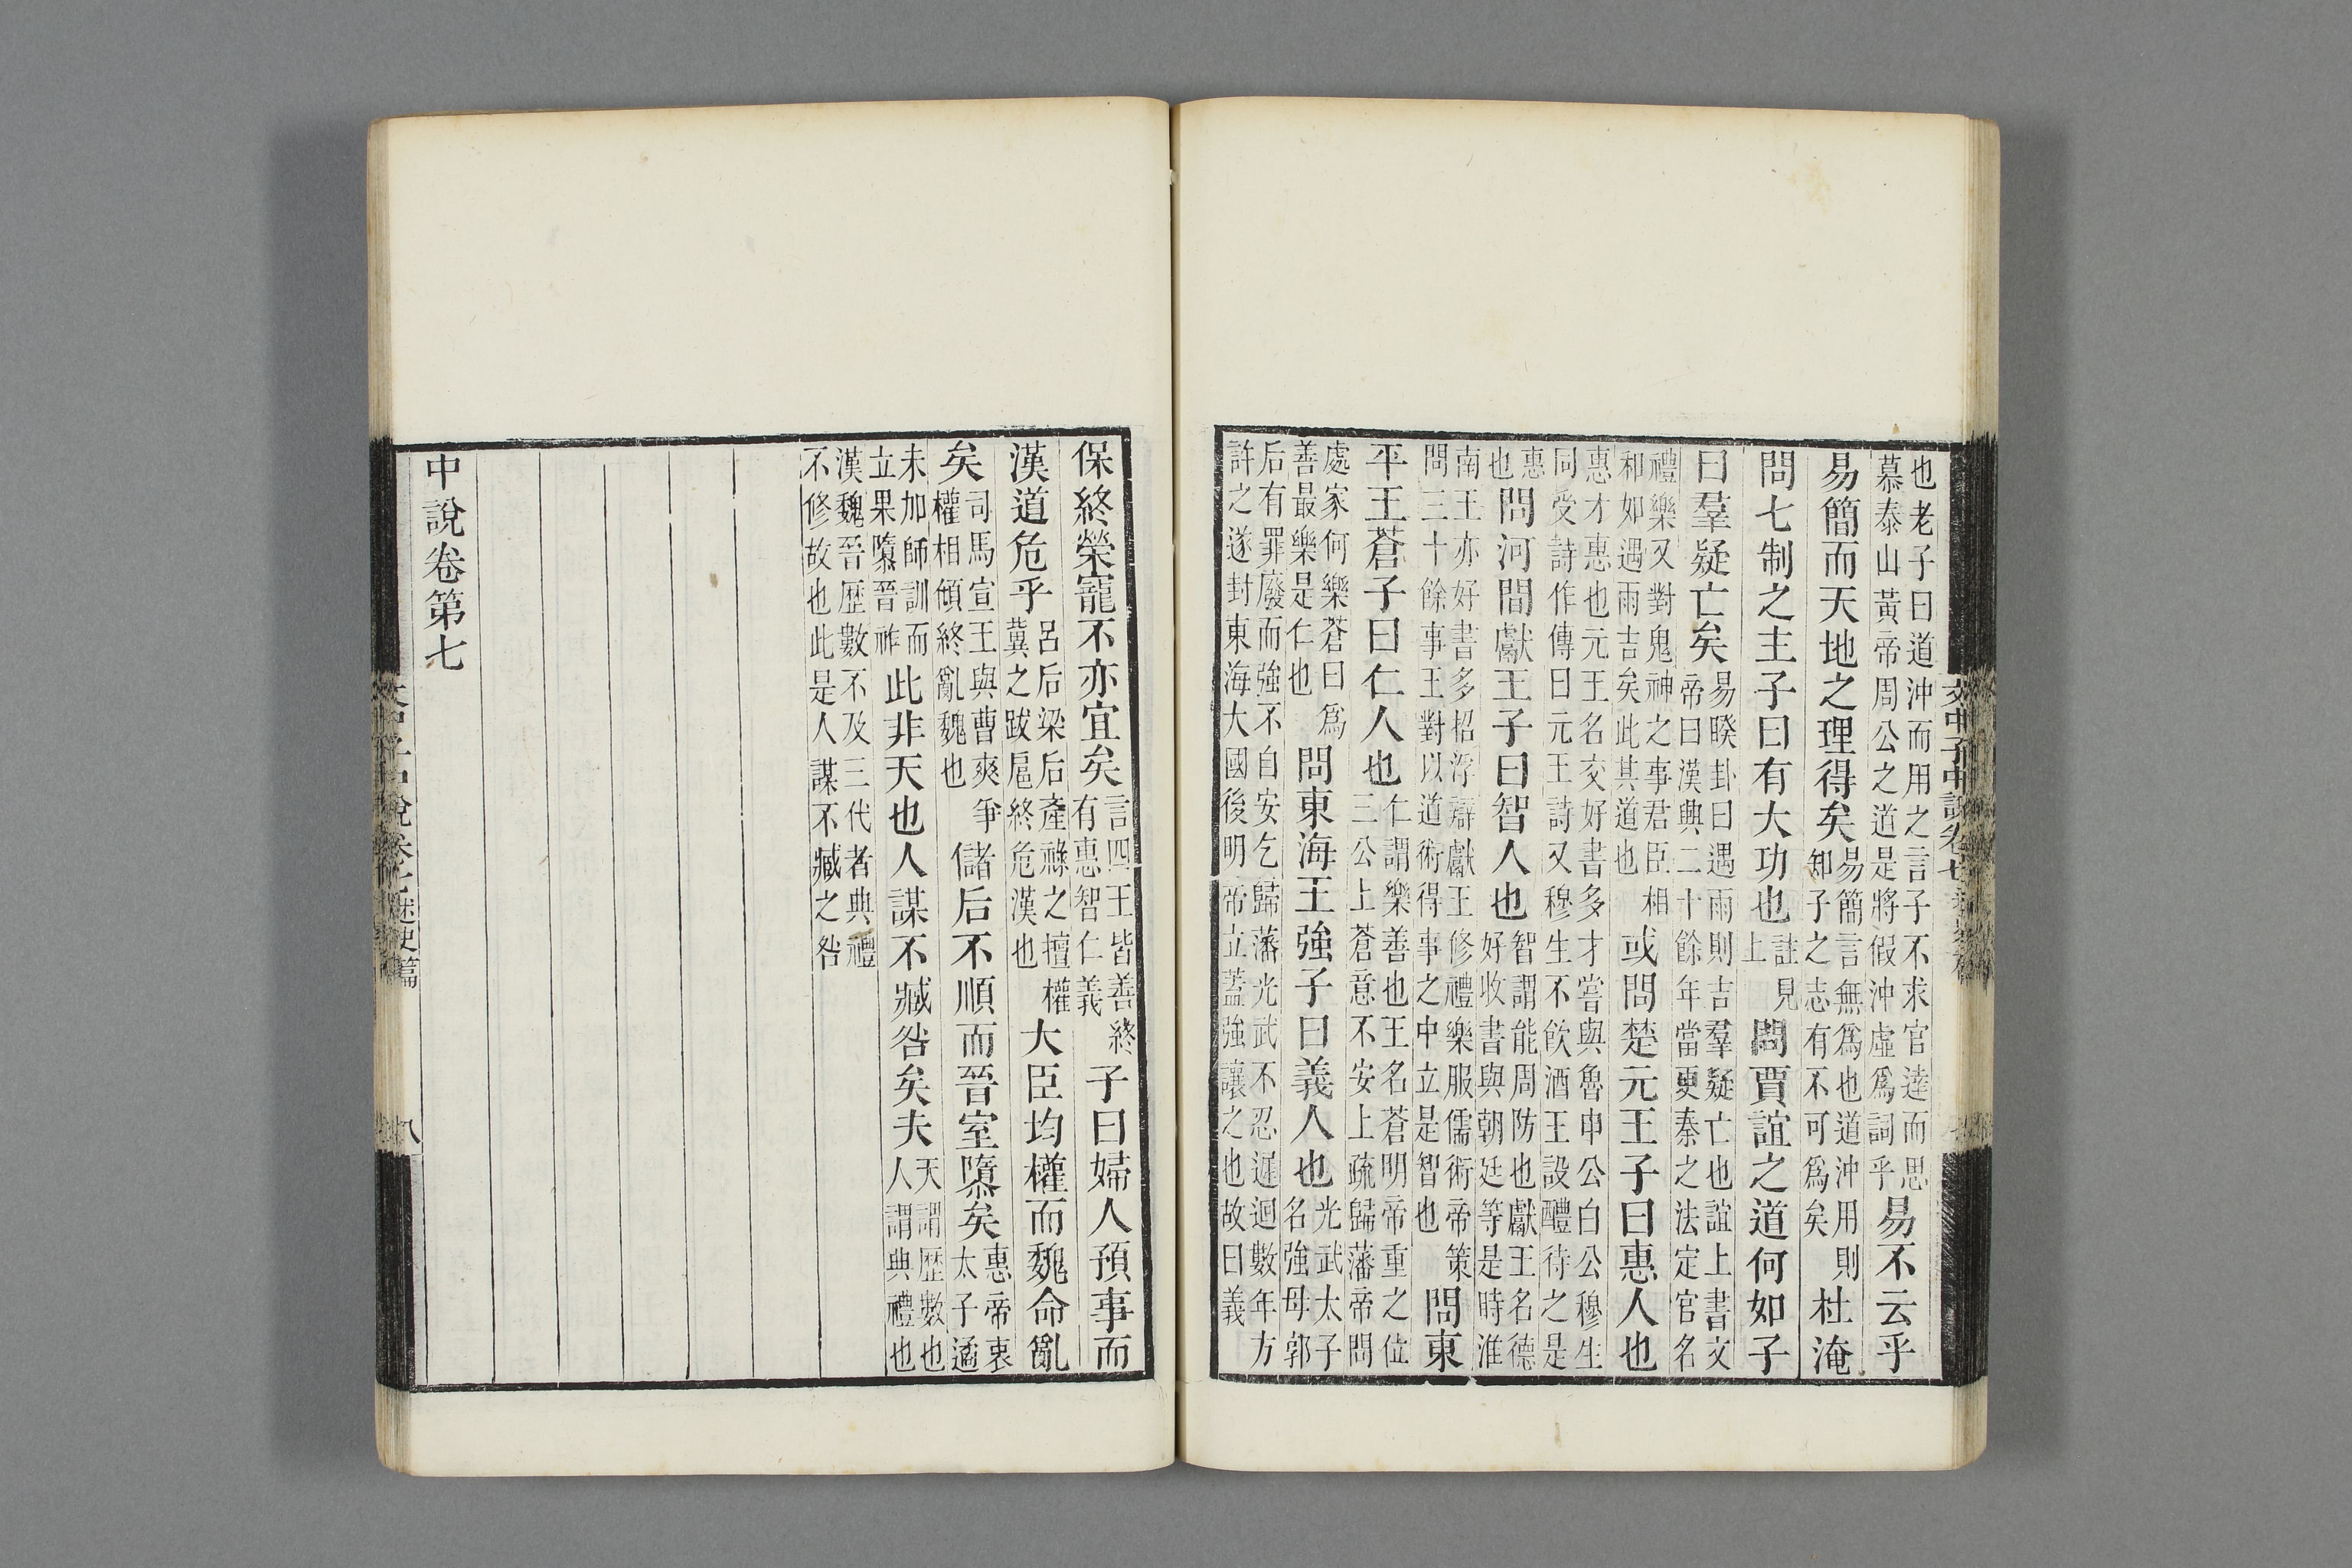 文中子中說卷七
也老子曰道沖而用之言子不求官達而思
慕泰山黃帝周公之道是將假沖虛爲詞乎
易不云乎
易簡而天地之理得矣
易簡言無爲也道沖用則
知子之志有不可爲矣
杜淹
問七制之主子曰有大功也
註見
上
問賈誼之道何如子
曰羣疑亡矣
易睽卦曰遇雨則吉羣疑亡也誼上書文
帝曰漢興二十餘年當更秦之法定官名
禮樂又對鬼神之事君臣相
和如遇雨吉矣此其道也
或問楚元王子曰惠人也
惠才惠也元王名交好書多才嘗與魯申公白公穆生
同受詩作傳曰元王詩又穆生不飲酒王設醴待之是
惠
也
問河間獻王子曰智人也
智謂能周防也獻王名德
好收書與朝廷等是時淮
南王亦好書多招浮辯獻王修禮樂服儒術帝策
問三十餘事王對以道術得事之中立是智也
問東
平王蒼子曰仁人也
仁謂樂善也王名蒼明帝重之位
三公上蒼意不安上疏歸藩帝問
處家何樂蒼曰爲
善最樂是仁也
問東海王強子曰義人也
光武太子
名強母郭
后有罪廢而強不自安乞歸藩光武不忍遲迴數年方
許之遂封東海大國後明帝立蓋強讓之也故曰義
保終榮寵不亦宜矣
言四王皆善終
有惠智仁義
子曰婦人預事而
漢道危乎
呂后梁后產祿之擅權
冀之跋扈終危漢也
大臣均權而魏命亂
矣
司馬宣王與曹爽爭
權相傾終亂魏也
儲后不順而晉室隳矣
惠帝衷
太子遹
未加師訓而
立果隳晉祚
此非天也人謀不臧咎矣夫
天謂歷數也
人謂典禮也
漢魏晉歷數不及三代者典禮
不修故也此是人謀不臧之咎
中說卷第七
述史篇
八